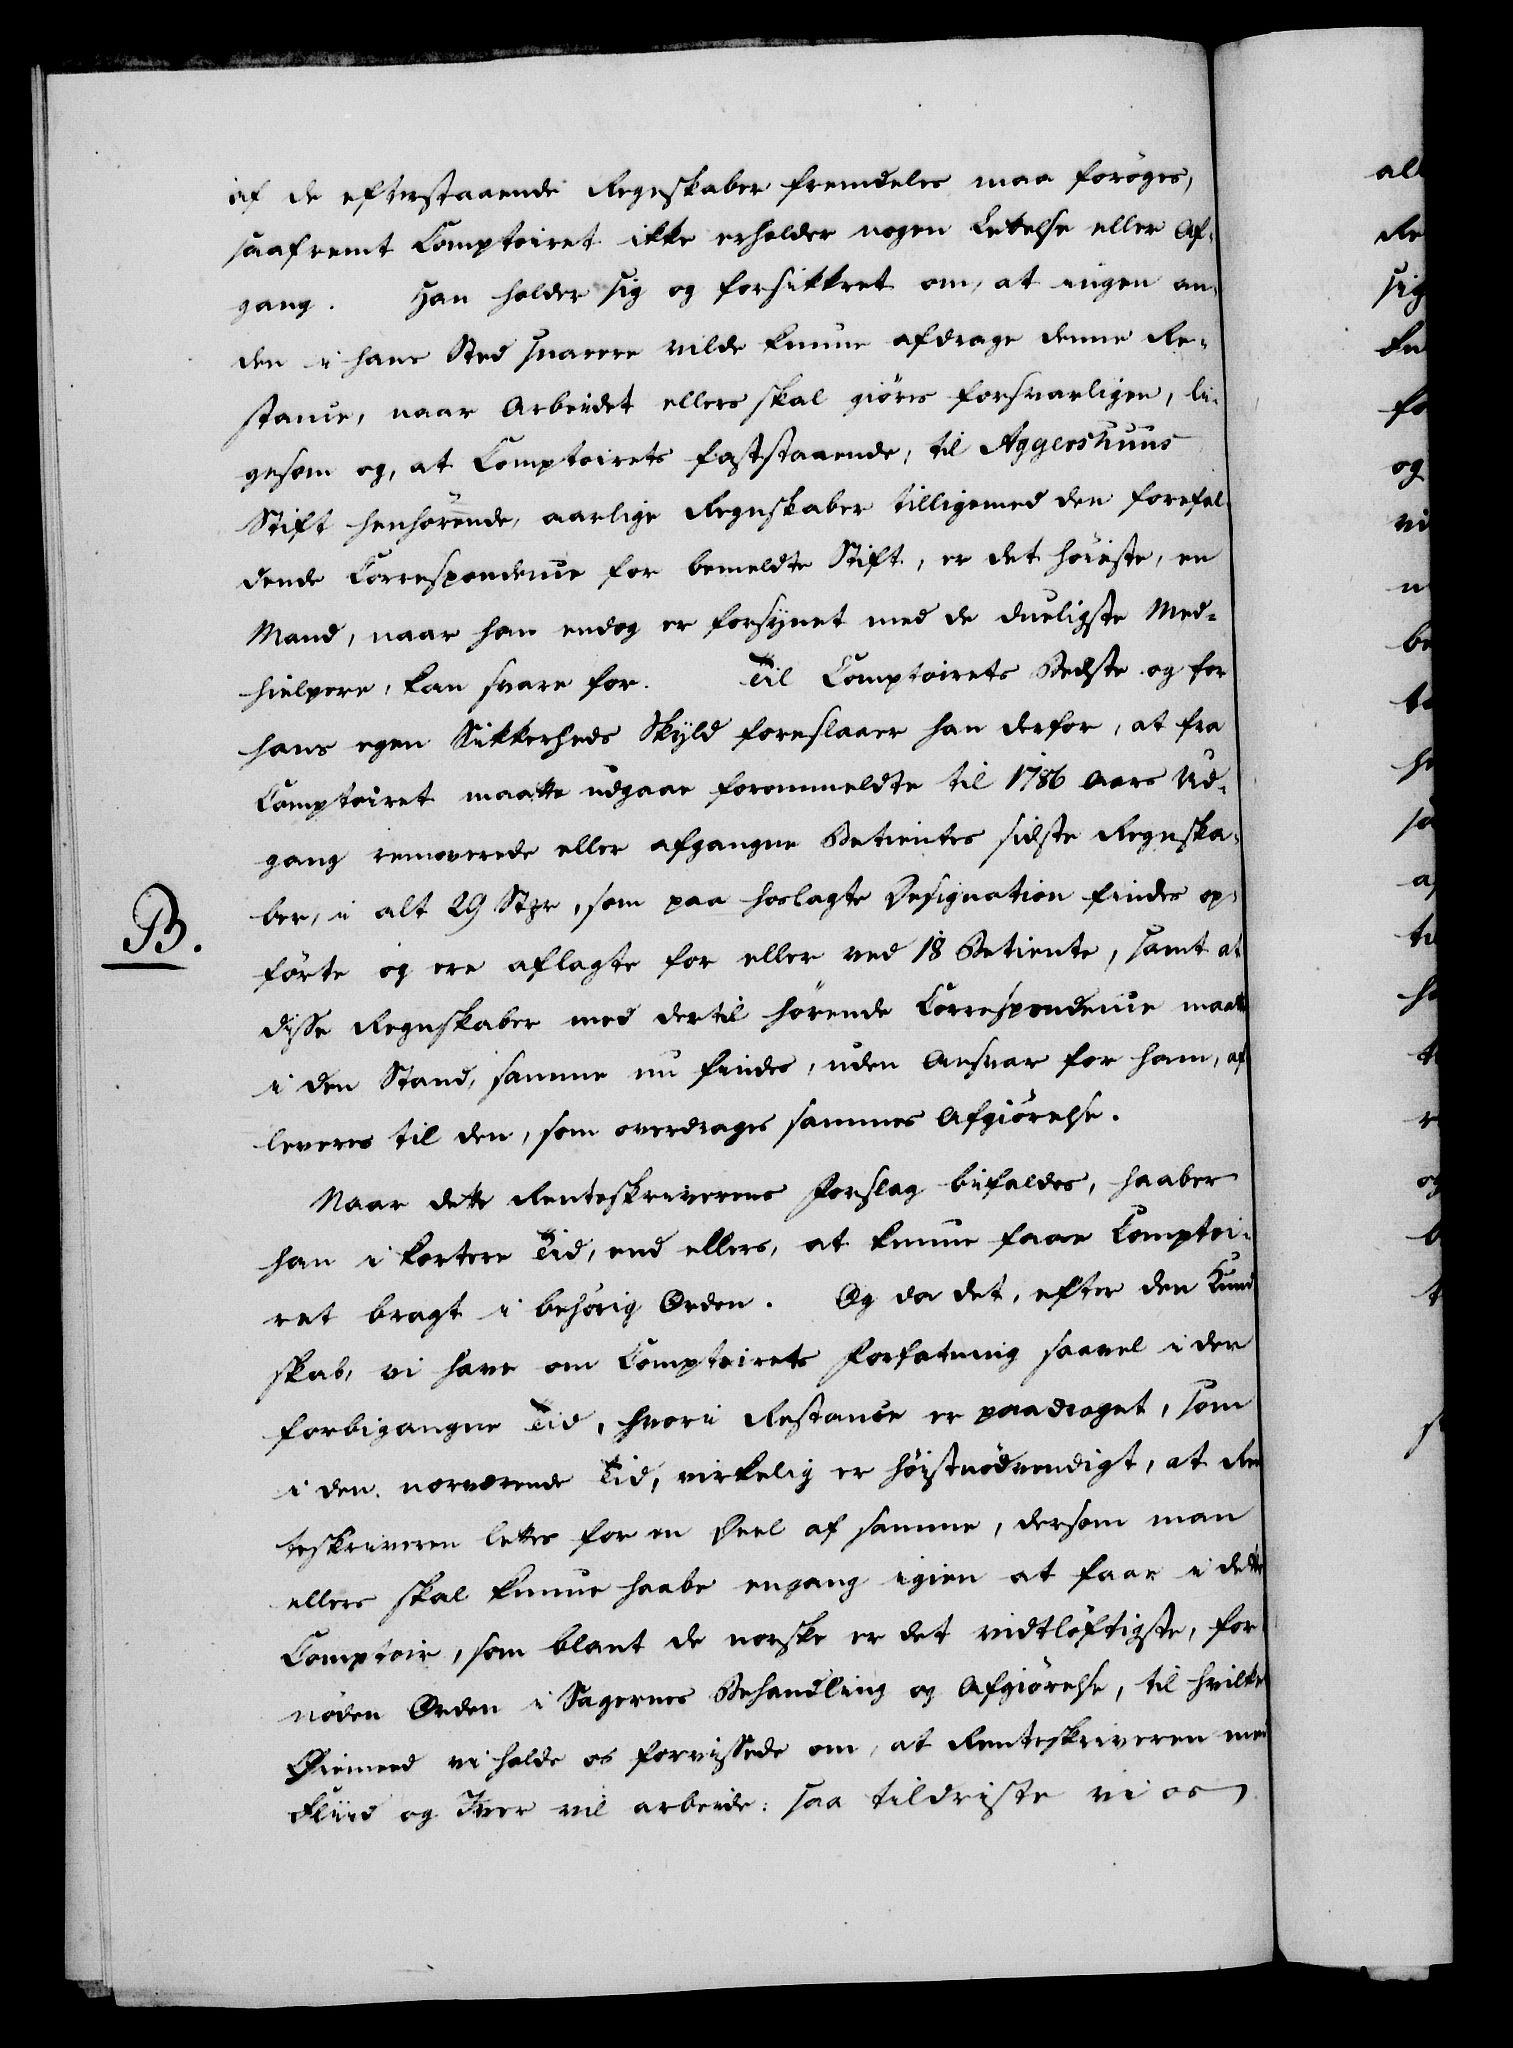 af de efterstaaende Regnskaber fremdeles maa forøges,
saafremt Comptoiret ikke erholder nogen Lettelse eller Af-
gang. Han holder sig og forsikkret om, at ingen an-
den i hans Sted snarere vilde kunne afdrage denne Re-
stance, naar Arbeidet ellers skal giøres forsvarligen, li-
gesom og, at Comptoirets faststaaende, til Aggershuus
Stift henhørende, aarlige Regnskaber tilligemed den forefal-
dende Correspondence for bemeldte Stift, er det høieste, en
Mand, naar han endog er forsynet med de dueligste Med-
hielpere, kan svare for. Til Comptoirets Bedste og for
hans egen Sikkerheds Skyld foreslaaer han derfor, at fra
Comptoiret maatte udgaae forommeldte til 1786 Aars Ud-
gang removerede eller afgangne Betientes sidste Regnska-
ber, i alt 29 Stkr, som paa hoslagte Designation findes op-
B.
førte og ere aflagte for eller ved 18 Betiente, samt at
disse Regnskaber med dertil hørende Correspondence maatte
i den Stand, samme nu findes, uden Ansvar for ham, af
leveres til den, som overdrages sammes Afgiørelse.
Naar dette Renteskriverens Forslag bifaldes, haaber
han i kortere Tid, end ellers, at kunne faae Comptoi-
ret bragt i behørig Orden. Og da det, efter den Kund
skab, vi have om Comptoirets Forfatning saavel i den
forbigangne Tid, hvori Restance er paadraget, som
i den nærværende Tid, virkelig er høistnødvendigt, at Ren
teskriveren lettes for en Deel af samme, dersom man
ellers skal kunne haabe engang igien at faae i dette
Comptoir, som blant de norske er det vidtløftigste, for-
nøden Orden i Sagernes Behandling og Afgiørelse, til hvilket
Øiemeed vi holde os forvissede om, at Renteskriveren med
Fliid og Iver vil arbeide: saa tildriste vi os